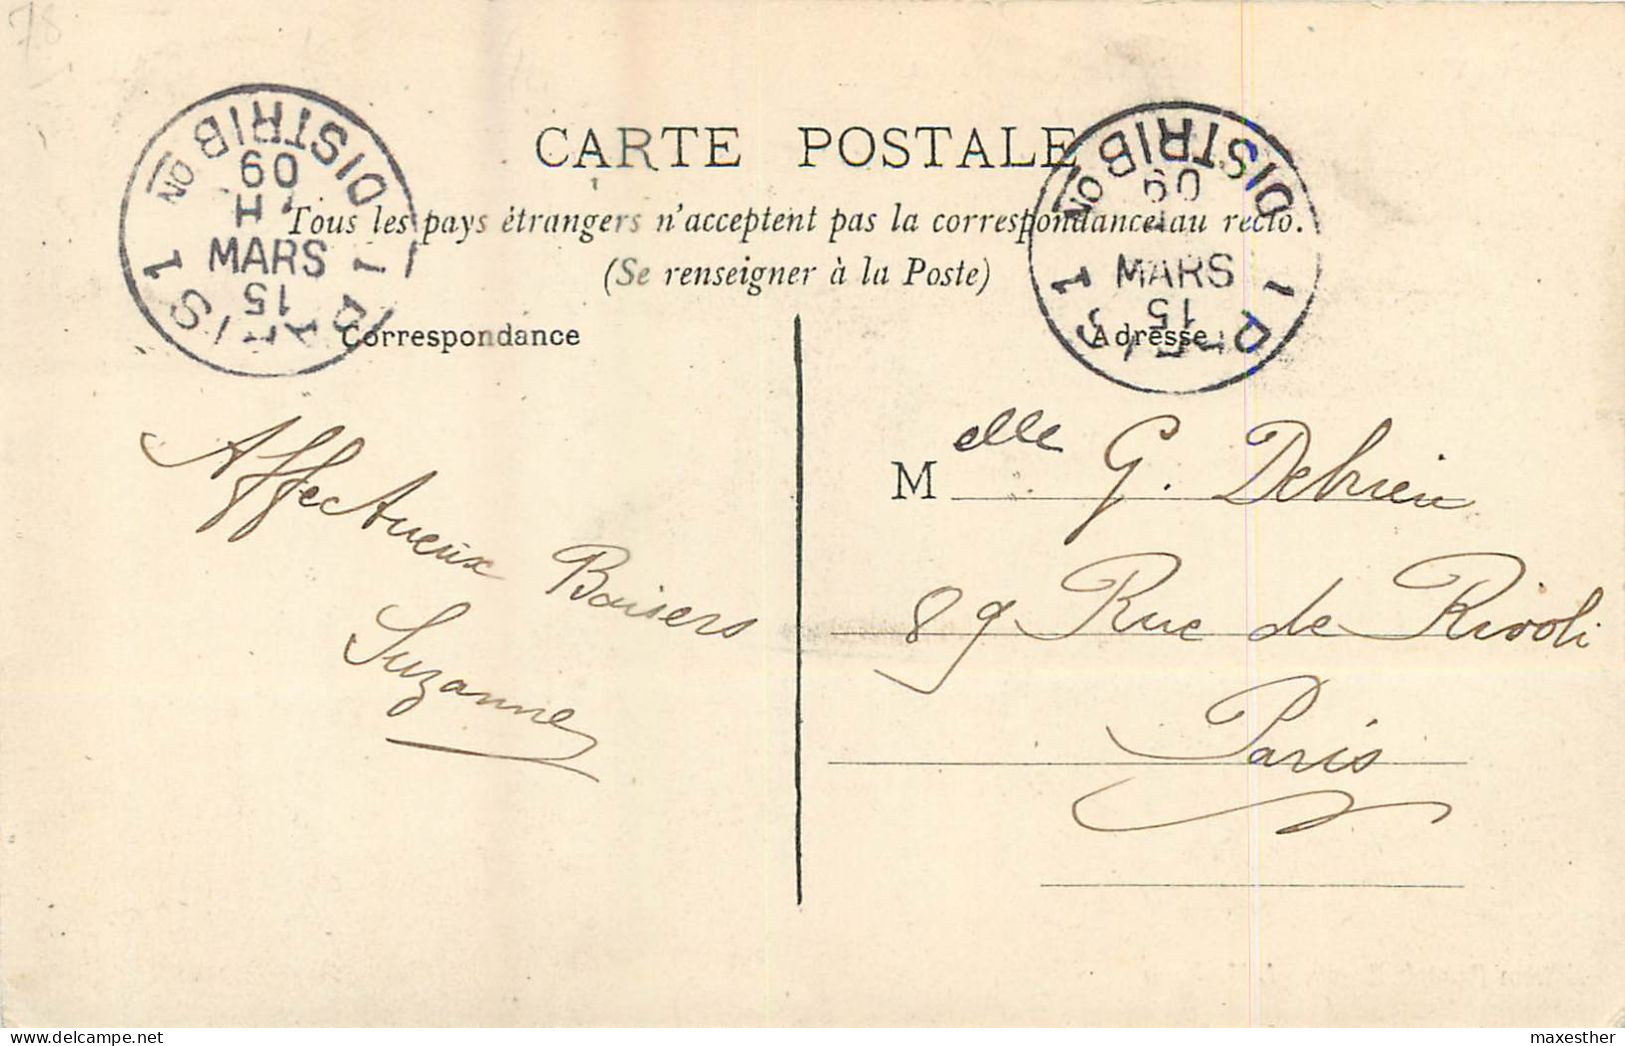 78
CARTE POSTALE
Tous les pays étrangers n'acceptent pas la correspondance au recto.
(Se renseigner à la Poste)
Correspondance
Adresse
DISTRIBON
09
MARS
15
PARIS 1
DISTRIBON
09
MARS
15
Affectueux Baisers
Suzanne
M elle G. Debrieu
89 Rue de Rivoli
Paris
maxesther